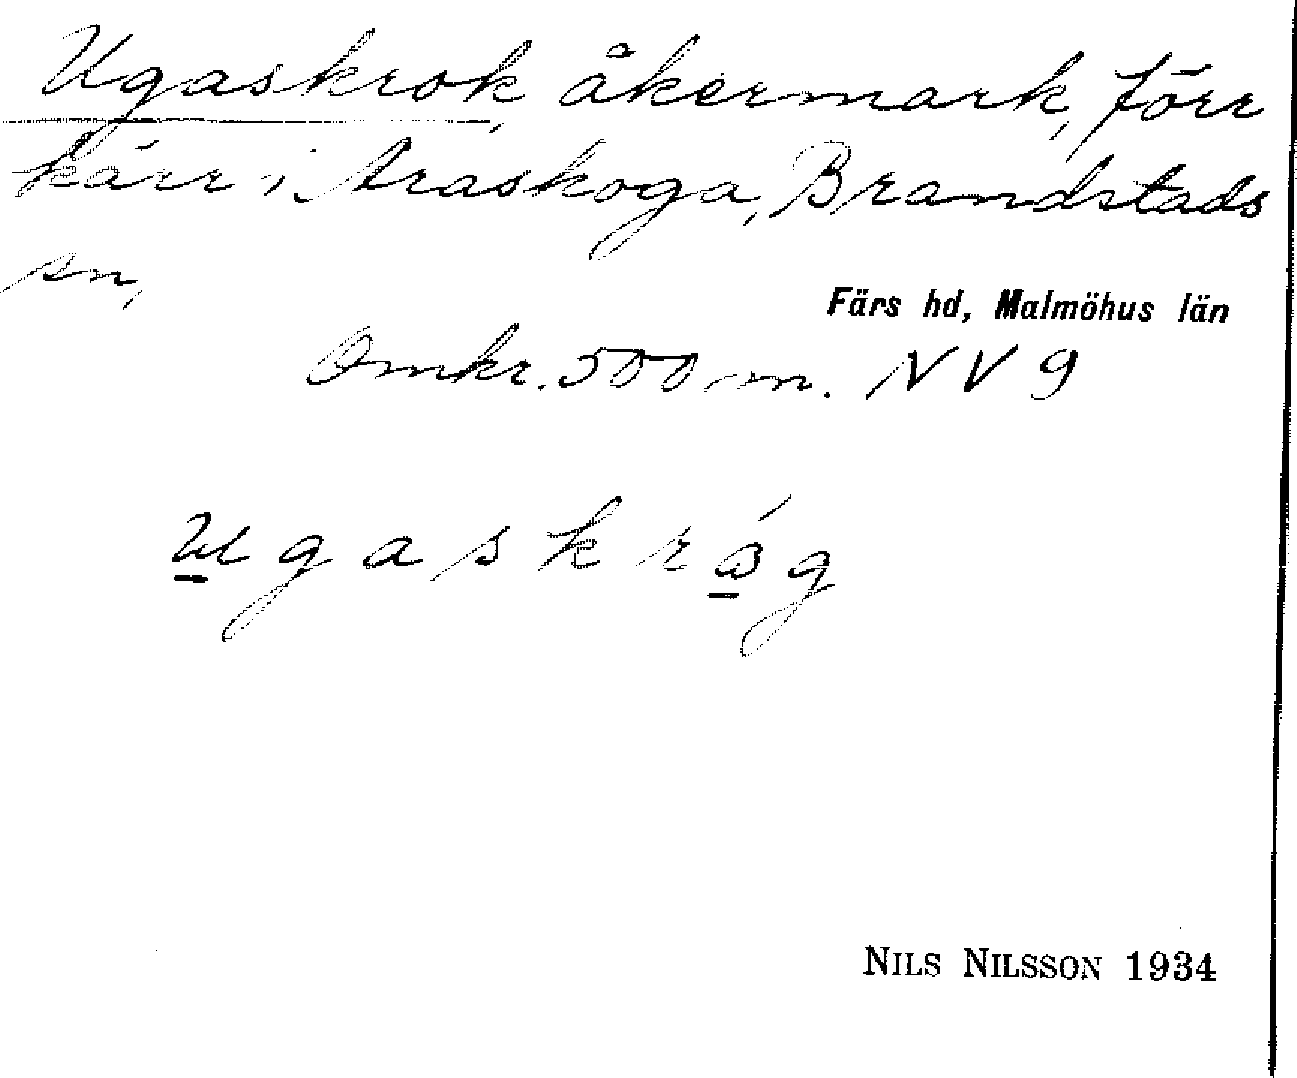 Ugaskrok, åkermark, förr
kärr i Araskoga, Brandstads
sn,
Färs hd, Malmöhus län
Omkr. 500 m. NV 9
ugaskråg
NILS NILSSON 1934